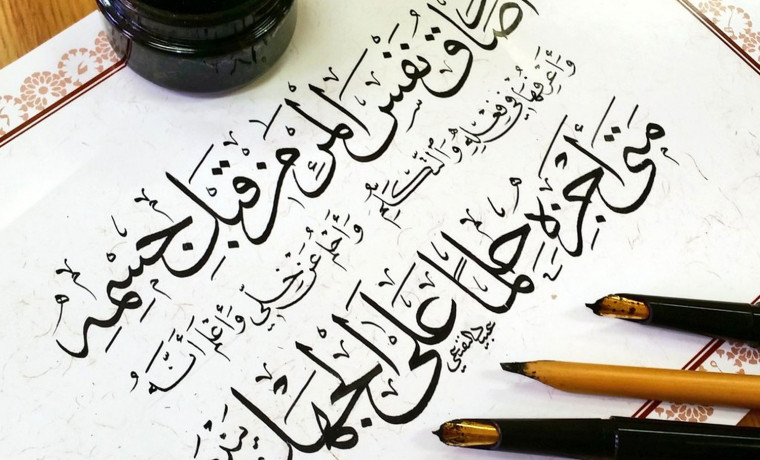 أصادق نفس المرء من قبل جسمه
وأعرفها في فعله والتكلم
وأحلم عن خلي وأعلم أنه
متى أجزه حلما على الجهل
عبيد النفيعي